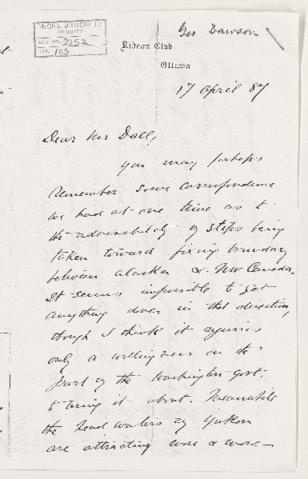 Geo Dawson
McGILL UNIVERSITY
ARCHIVES
ACC. NO. 2052
REF. 103
Rideau Club
Ottawa
17 April 87
Dear Mr Dall,
You may perhaps
remember some correspondence
we had at one time as to
the advisability of steps being
taken toward fixing boundary
between Alaska & NW Canada.
It seems impossible to get
anything done in that direction,
though I think it requires
only a willingness on the
part of the Washington Govt.
to bring it about. Meanwhile
the head waters of Yukon
are attracting more & more